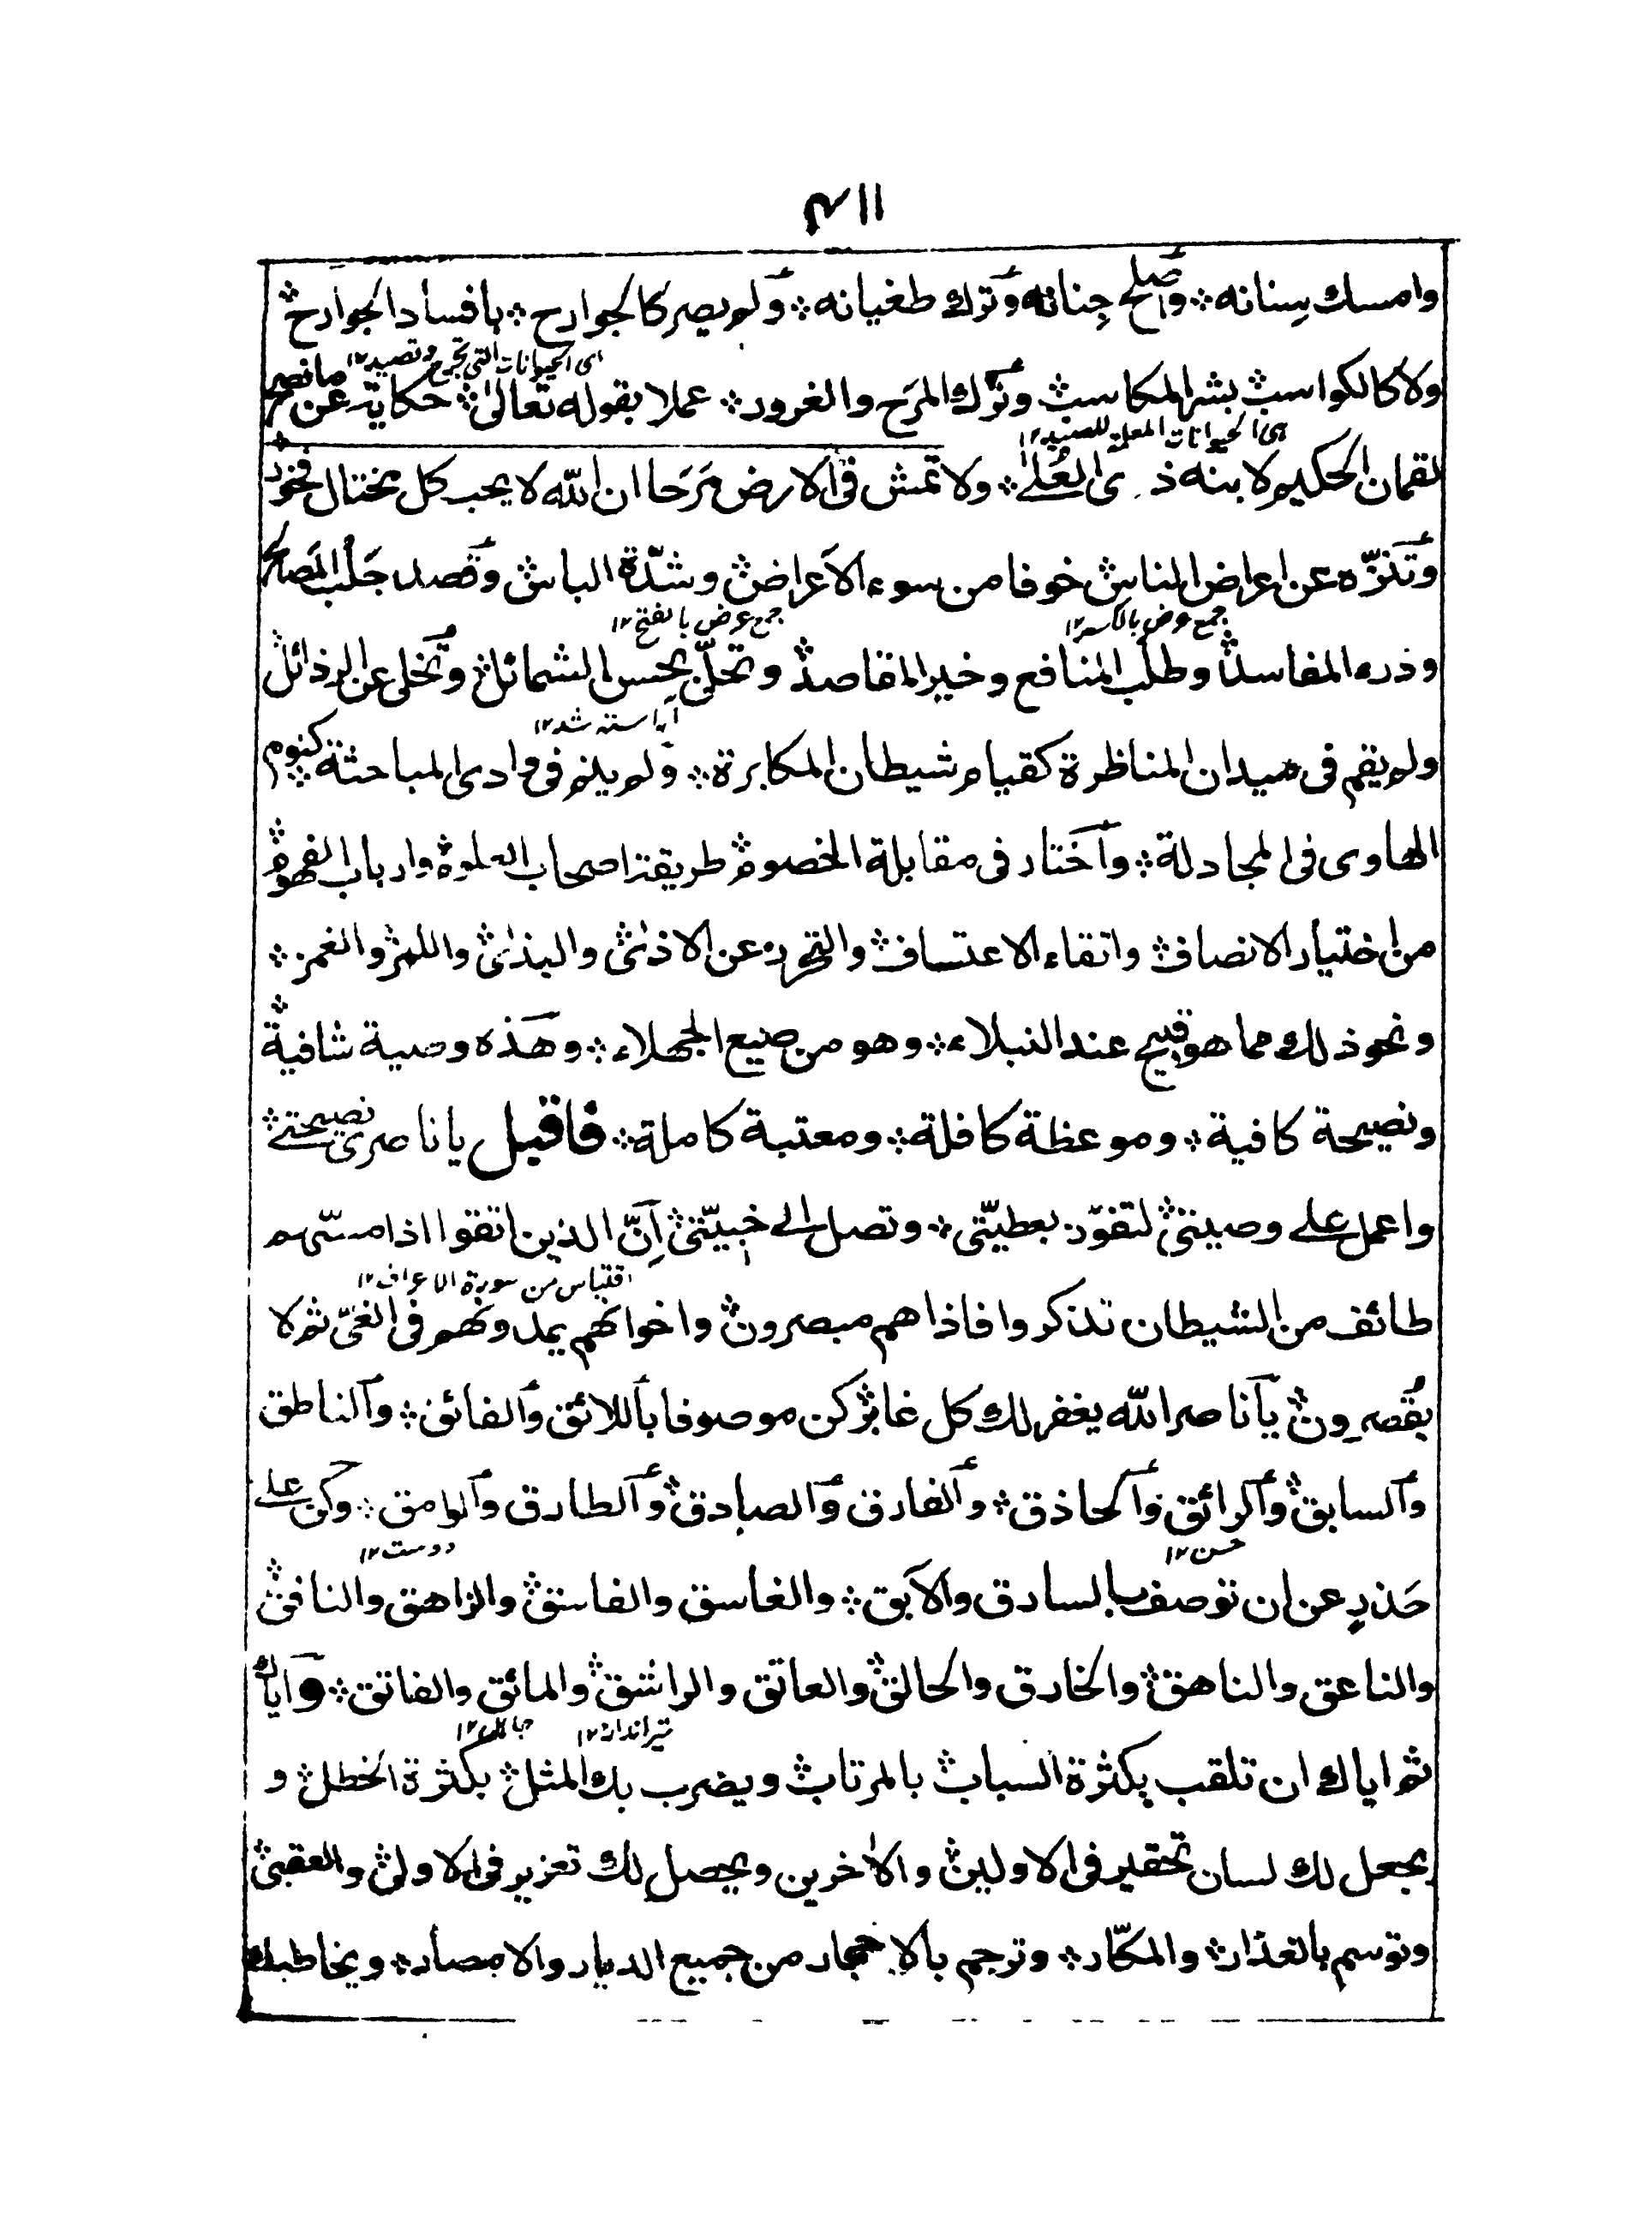 ۱۱۴
وامسك سنانه ؞ وأصلح جنانه وترك طغيانه ؞ ولم يصر كالجوارح ؞ بافساد الجوارح ؞
اى الحيوانات التى تجرح وتصيد ۱۲
ولا كالكواسب ؞ بشر المكاسب ؞ وترك المرح والغرور ؞ عملا بقوله تعالىٰ ؞ حكاية عن ما نصح
هى الحيوانات المعلمة للصيد ۱۲
لقمان الحكيم لابنه ذى العلے ؞ ولا تمش فى الارض مرحا ان الله لا يحب كل مختال فخور ؞
وتنزّه عن اعراض الناس ؞ خوفا من سوء الاعراض ؞ وشدّة الباس ؞ وقصد جلب المصالح
جمع عرض بالكسر ۱۲ جمع عرض بالفتح ۱۲
وذرء المفاسد ؞ وطلب المنافع وخير المقاصد ؞ وتحلّى بحسن الشمائل ؞ وتخلى عن الرذائل ؞
آراسته شد ۱۲
ولم يقم فى ميدان المناظرة كقيام شيطان المكابرة ؞ ولم ينم فى وادى المباحثة ؞ كنوم
الهاوى فى المجادلة ؞ وآختار فى مقابلة الخصوم ؞ طريقة اصحاب العلوم ؞ وارباب الفهوم ؞
من اختيار الانصاف ؞ واتقاء الاعتساف ؞ والتحرز عن الاذىٰ ؞ والبذىٰ ؞ واللمز ؞ والغمز ؞
ونحو ذلك مما هو قبيح عند النبلاء ؞ وهو من صنيع الجهلاء ؞ وهذه وصية شافية ؞
ونصيحة كافية ؞ وموعظة كافلة ؞ ومعتبة كاملة ؞ فاقبل يا ناصرى نصيحتے ؞
واعمل علے وصيتى ؞ لتفوز بعطيّتى ؞ وتصل الے خبيّتى ؞ اِنّ الذين اتقوا اذا مسّهم
اقتباس من سورة الاعراف ۱۲
طائف من الشيطان تذكروا فاذا هم مبصرون ؞ واخوانهم يمدونهم فى الغىّ ثم لا
يقصرون ؞ يآ ناصر الله يغفر لك كل غابر ؞ كن موصوفا باللائق والفائق ؞ والناطق
والسابق ؞ والرائق والحاذق ؞ والفارق والصادق ؞ والطارق والوامق ؞ وكن علے
حسن ۱۲ دوست ۱۲
حذر عن ان توصف بالسارق والآبق ؞ والغاسق والفاسق ؞ والزاهق والنافق ؞
والناعق والناهق ؞ والخارق والحالق ؞ والعاتق والراشق ؞ والمائق والفاتق ؞ واياك
تيرانداز ۱۲ جاهل ۱۲
ثم اياك ان تلقب بكثرة السباب ؞ بالمرتاب ؞ ويضرب بك المثل ؞ بكثرة الخطل ؞ و
يجعل لك لسان تحقير فى الاولين ؞ والاٰخرين ويحصل لك تعزير فى الاولىٰ ؞ والعقبىٰ ؞
وتوسم بالغدّار ؞ والمكّار ؞ وترجم بالاحجار من جميع الديار والامصار ؞ ويخاطبك